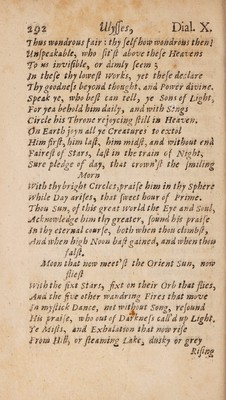 292 Ulysses, Dial. X.
Thus wondrous fair: thy self how wondrous then!
Unspeakable, who sit'st above these Heavens
To us invisible, or dimly seem
In these thy lowest Works, yet these declare
Thy goodness beyond thought, and Power divine.
Speak ye, who best can tell, ye Sons of Light,
For yea behold him daily, and with Songs
Circle his Throne rejoycing still in Heaven.
On Earth joyn all ye Creatures to extol
Him first, him last, him midst, and without end
Fairest of Stars, last in the train of Night,
Sure pledge of day, that crown'st the smiling
Morn
With thy bright Circles, praise him in thy Sphere
While Day arises, that sweet hour of Prime.
Thou Sun, of this great world the Eye and Soul,
Acknowledge him thy greater, sound his praise
In thy eternal course, both when thou climbst,
And when high Noon hast gained, and when thou
falst.
Moon that now meet'st the Orient Sun, now
fliest
With the fixt Stars, fixt on their Orb that flies,
And the five other wandring Fires that move
In mystick Dance, not without Song, resound
His praise, who out of Darkness call'd up Light.
Ye Mists, and Exhalation that now rise
From Hill, or steaming Lake, dusky or grey
Rising